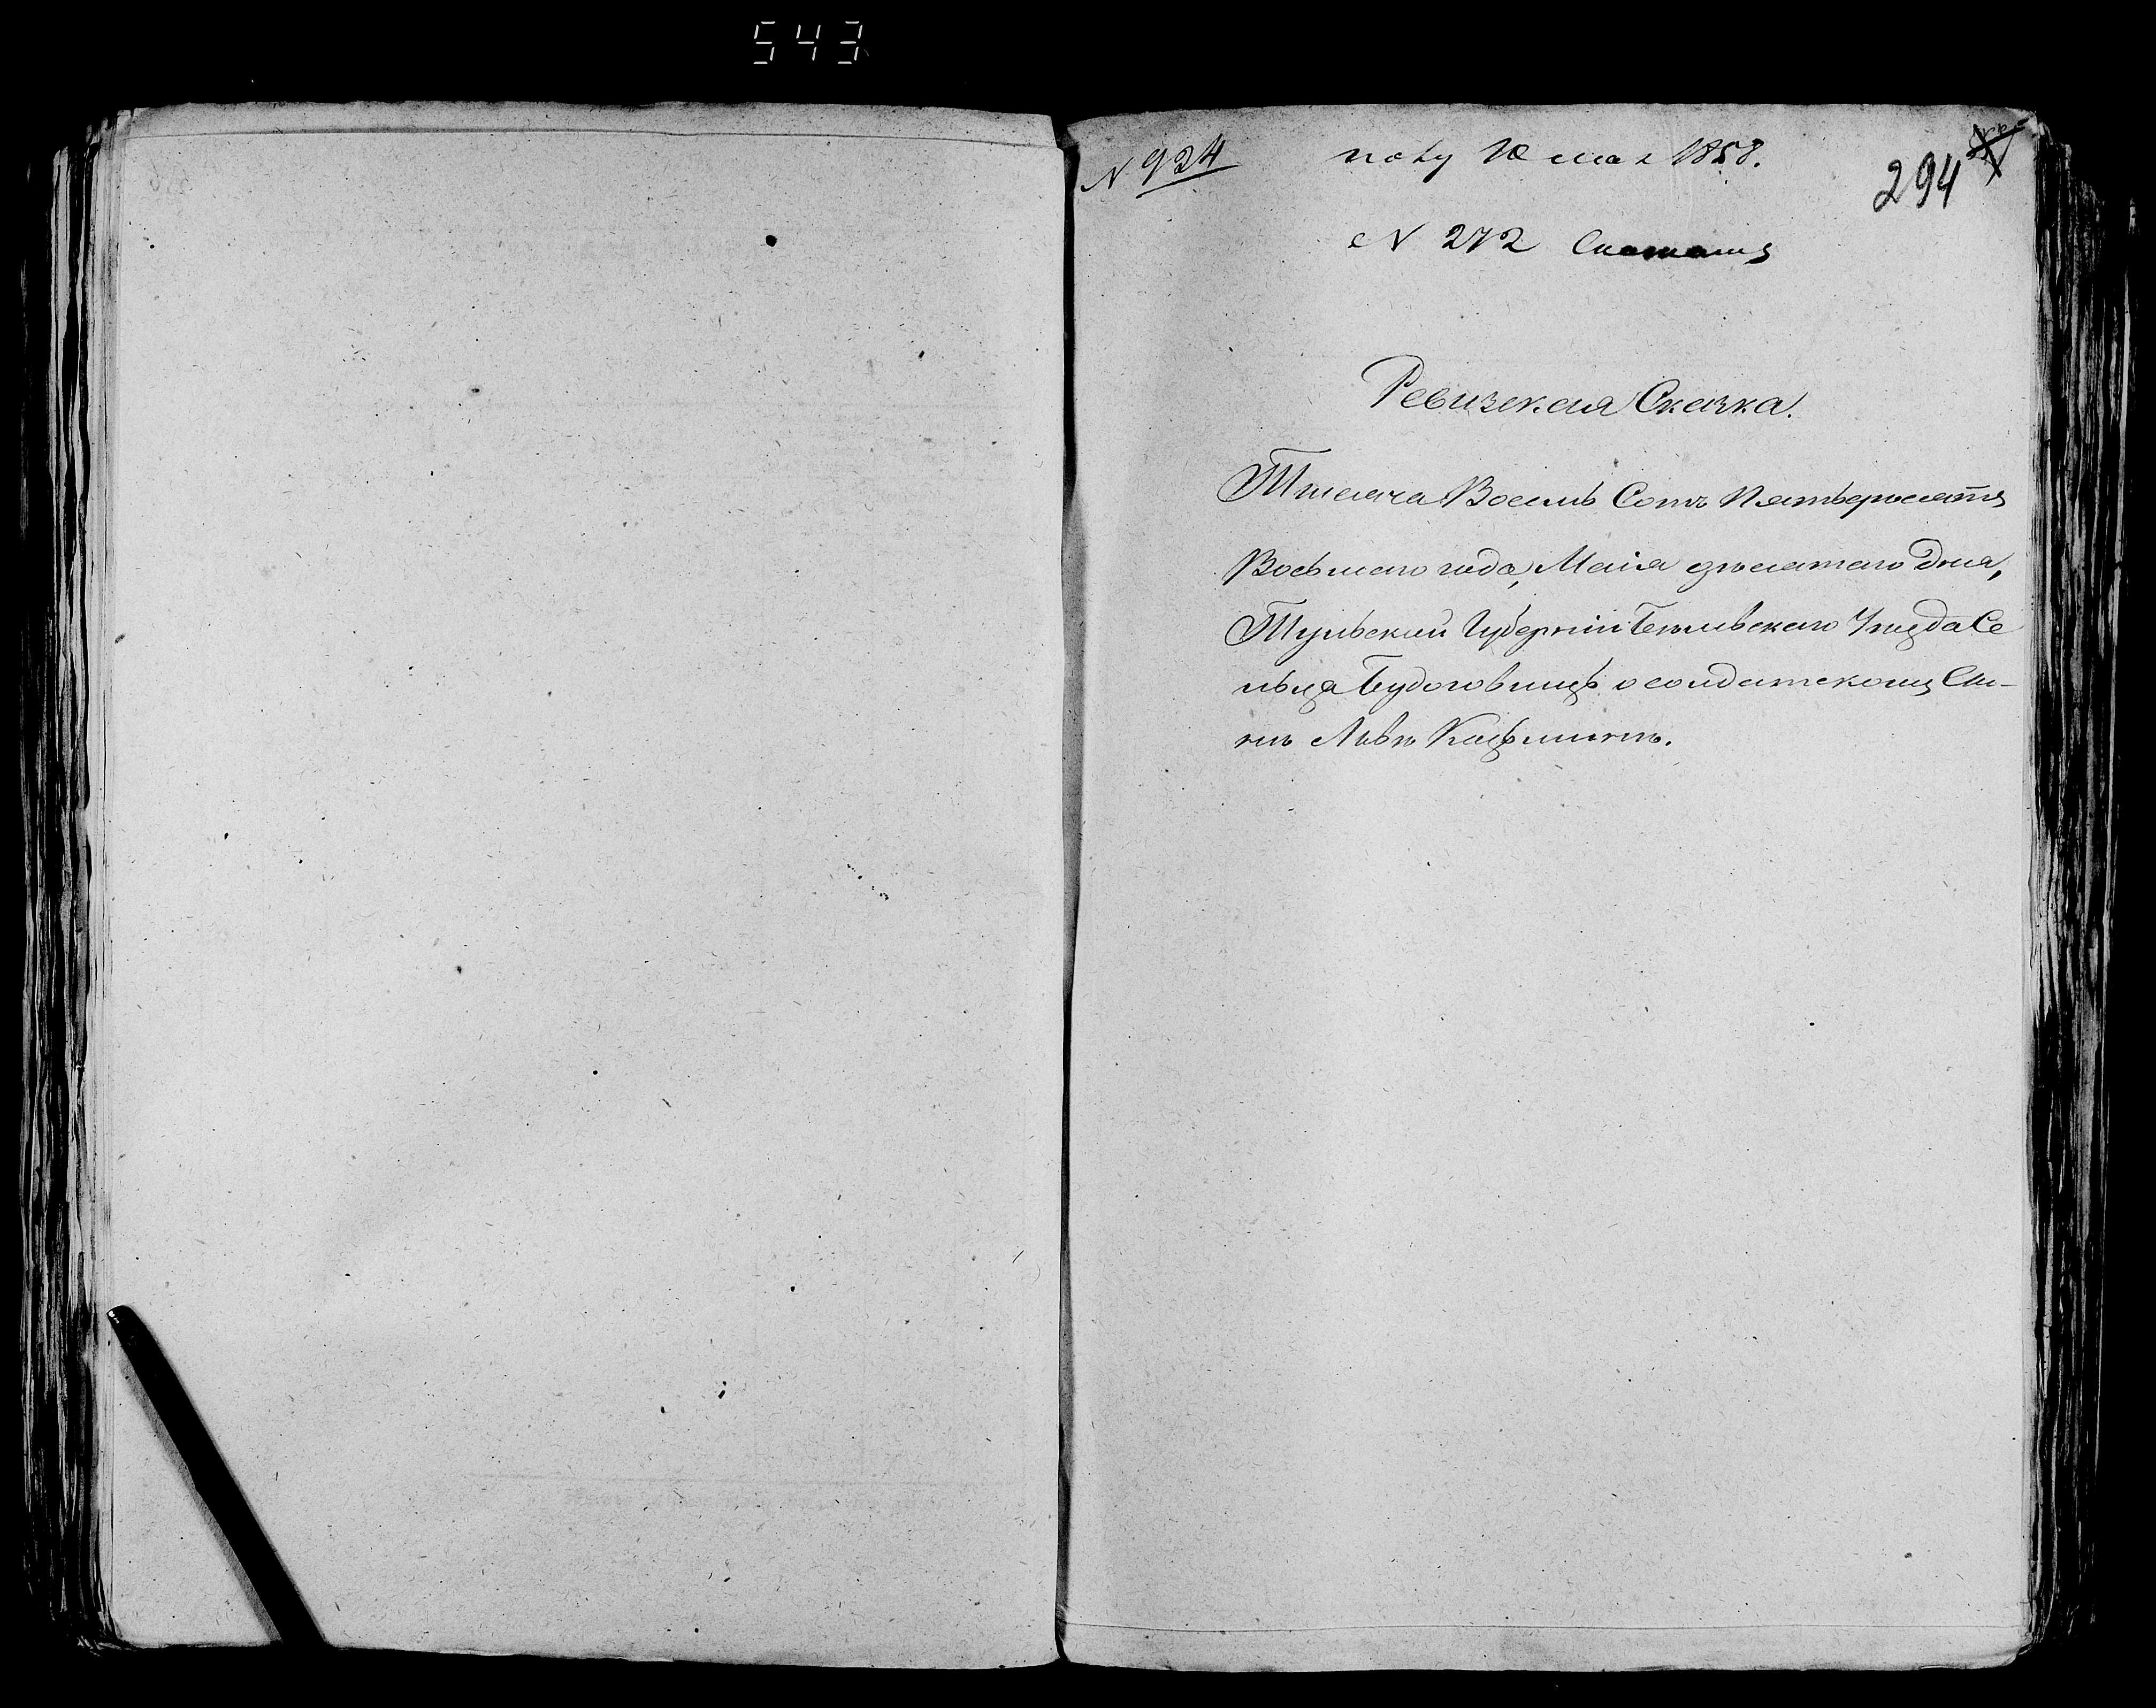 543
N 924
10 мая 1858.
294
N 272
Ревизская Сказка.
Тысеча Восемь Сотъ Пятьдесятъ
Восьмаго года, Маія десятаго дня,
Тульской Губерніи Белевскаго Уѣзда Се
льца Будоговищъ о солдатскомъ Сы-
нѣ Львѣ Кузьминѣ.